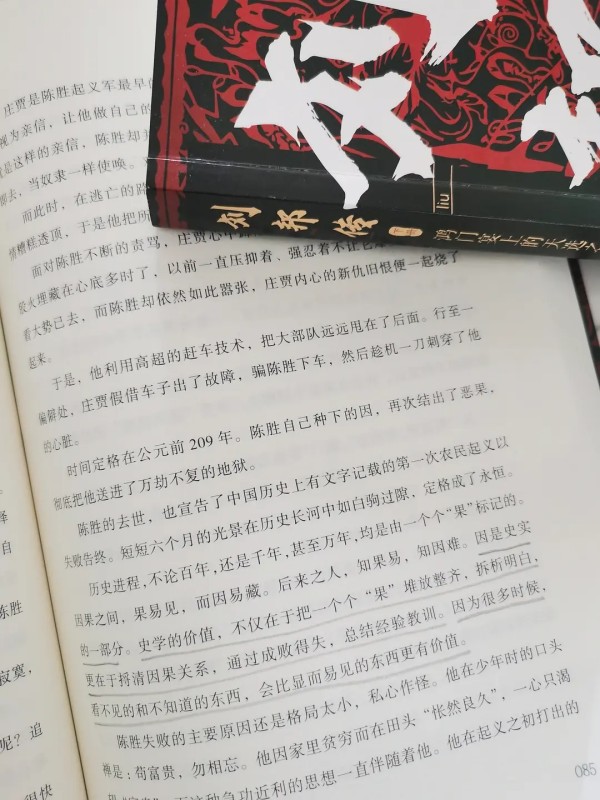 太
liu
刘邦传 下册 鸿门宴上的天选之
庄贾是陈胜起义军最早
视为亲信，让他做自己的
是这样的亲信，陈胜却
去，当奴隶一样使唤。
而此时，在逃亡的路
情糟糕透顶，于是他把所
面对陈胜不断的责骂，庄贾心中
怒火埋藏在心底多时了，以前一直压抑着、强忍着不让它
看大势已去，而陈胜却依然如此嚣张，庄贾内心的新仇旧恨便一起烧了
起来。
于是，他利用高超的赶车技术，把大部队远远甩在了后面。行至一
偏僻处，庄贾假借车子出了故障，骗陈胜下车，然后趁机一刀刺穿了他
的心脏。
时间定格在公元前 209 年。陈胜自己种下的因，再次结出了恶果，
彻底把他送进了万劫不复的地狱。
陈胜的去世，也宣告了中国历史上有文字记载的第一次农民起义以
失败告终。短短六个月的光景在历史长河中如白驹过隙，定格成了永恒。
历史进程，不论百年，还是千年，甚至万年，均是由一个个“果”标记的。
因果之间，果易见，而因易藏。后来之人，知果易，知因难。因是史实
的一部分。史学的价值，不仅在于把一个个“果”堆放整齐，拆析明白，
更在于捋清因果关系，通过成败得失，总结经验教训。因为很多时候，
看不见的和不知道的东西，会比显而易见的东西更有价值。
陈胜失败的主要原因还是格局太小，私心作怪。他在少年时的口头
禅是：苟富贵，勿相忘。他因家里贫穷而在田头“怅然良久”，一心只渴
这种急功近利的思想一直伴随着他。他在起义之初打出的
085
释
自
陈胜
寂寞，
呢？追
很快